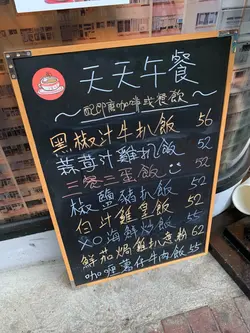 天天午餐
～配即磨咖啡或餐飲～
黑椒汁牛扒飯 56
蒜茸汁雞扒飯 52
三餸二蛋飯 52
椒鹽豬扒飯 52
白汁雞皇飯 52
XO海鮮炒飯 55
鮮茄焗雞扒意粉 52
咖喱薯仔牛肉飯 55